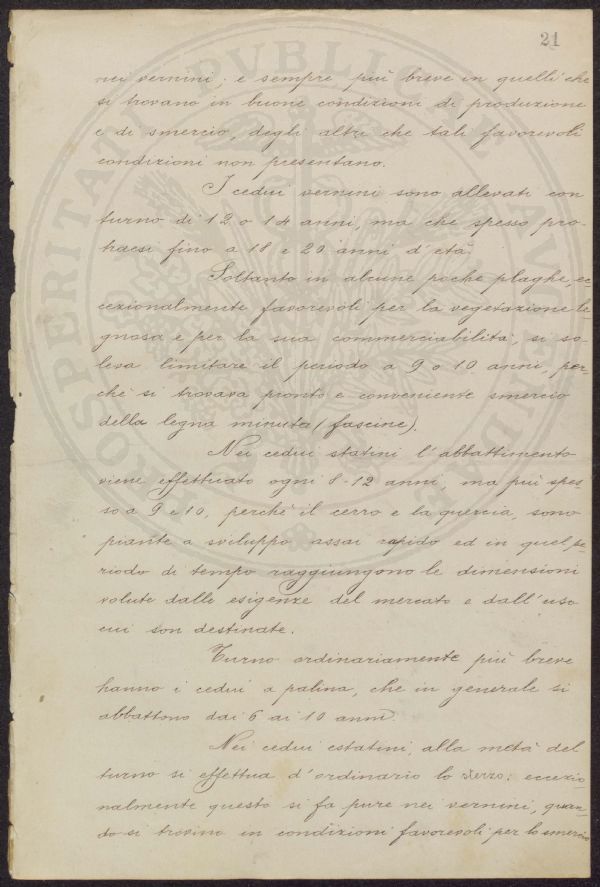 21
nei vernini; e sempre più breve in quelli che
si trovano in buone condizioni di produzione
e di smercio, degli altri che tali favorevoli
condizioni non presentano.
I cedui vernini sono allevati con
turno di 12 o 14 anni, ma che spesso pro-
traesi fino a 18 e 20 anni d'età.
Soltanto in alcune poche plaghe, ec-
cezionalmente favorevoli per la vegetazione le-
gnosa e per la sua commerciabilità, si so-
leva limitare il periodo a 9 o 10 anni, per-
chè si trovava pronto e conveniente smercio
della legna minuta (fascine).
Nei cedui statini l'abbattimento
viene effettuato ogni 8-12 anni, ma più spes-
so a 9 e 10, perchè il cerro e la quercia, sono
piante a sviluppo assai rapido ed in quel pe-
riodo di tempo raggiungono le dimensioni
volute dalle esigenze del mercato e dall'uso
cui son destinate.
Turno ordinariamente più breve
hanno i cedui a palina, che in generale si
abbattono dai 6 ai 10 anni.
Nei cedui estatini, alla metà del
turno si effettua d'ordinario lo sterzo; eccezio-
nalmente questo si fa pure nei vernini, quan-
do si trovino in condizioni favorevoli per lo smercio
PROSPERITATI PVBLICAE AVGENDAE